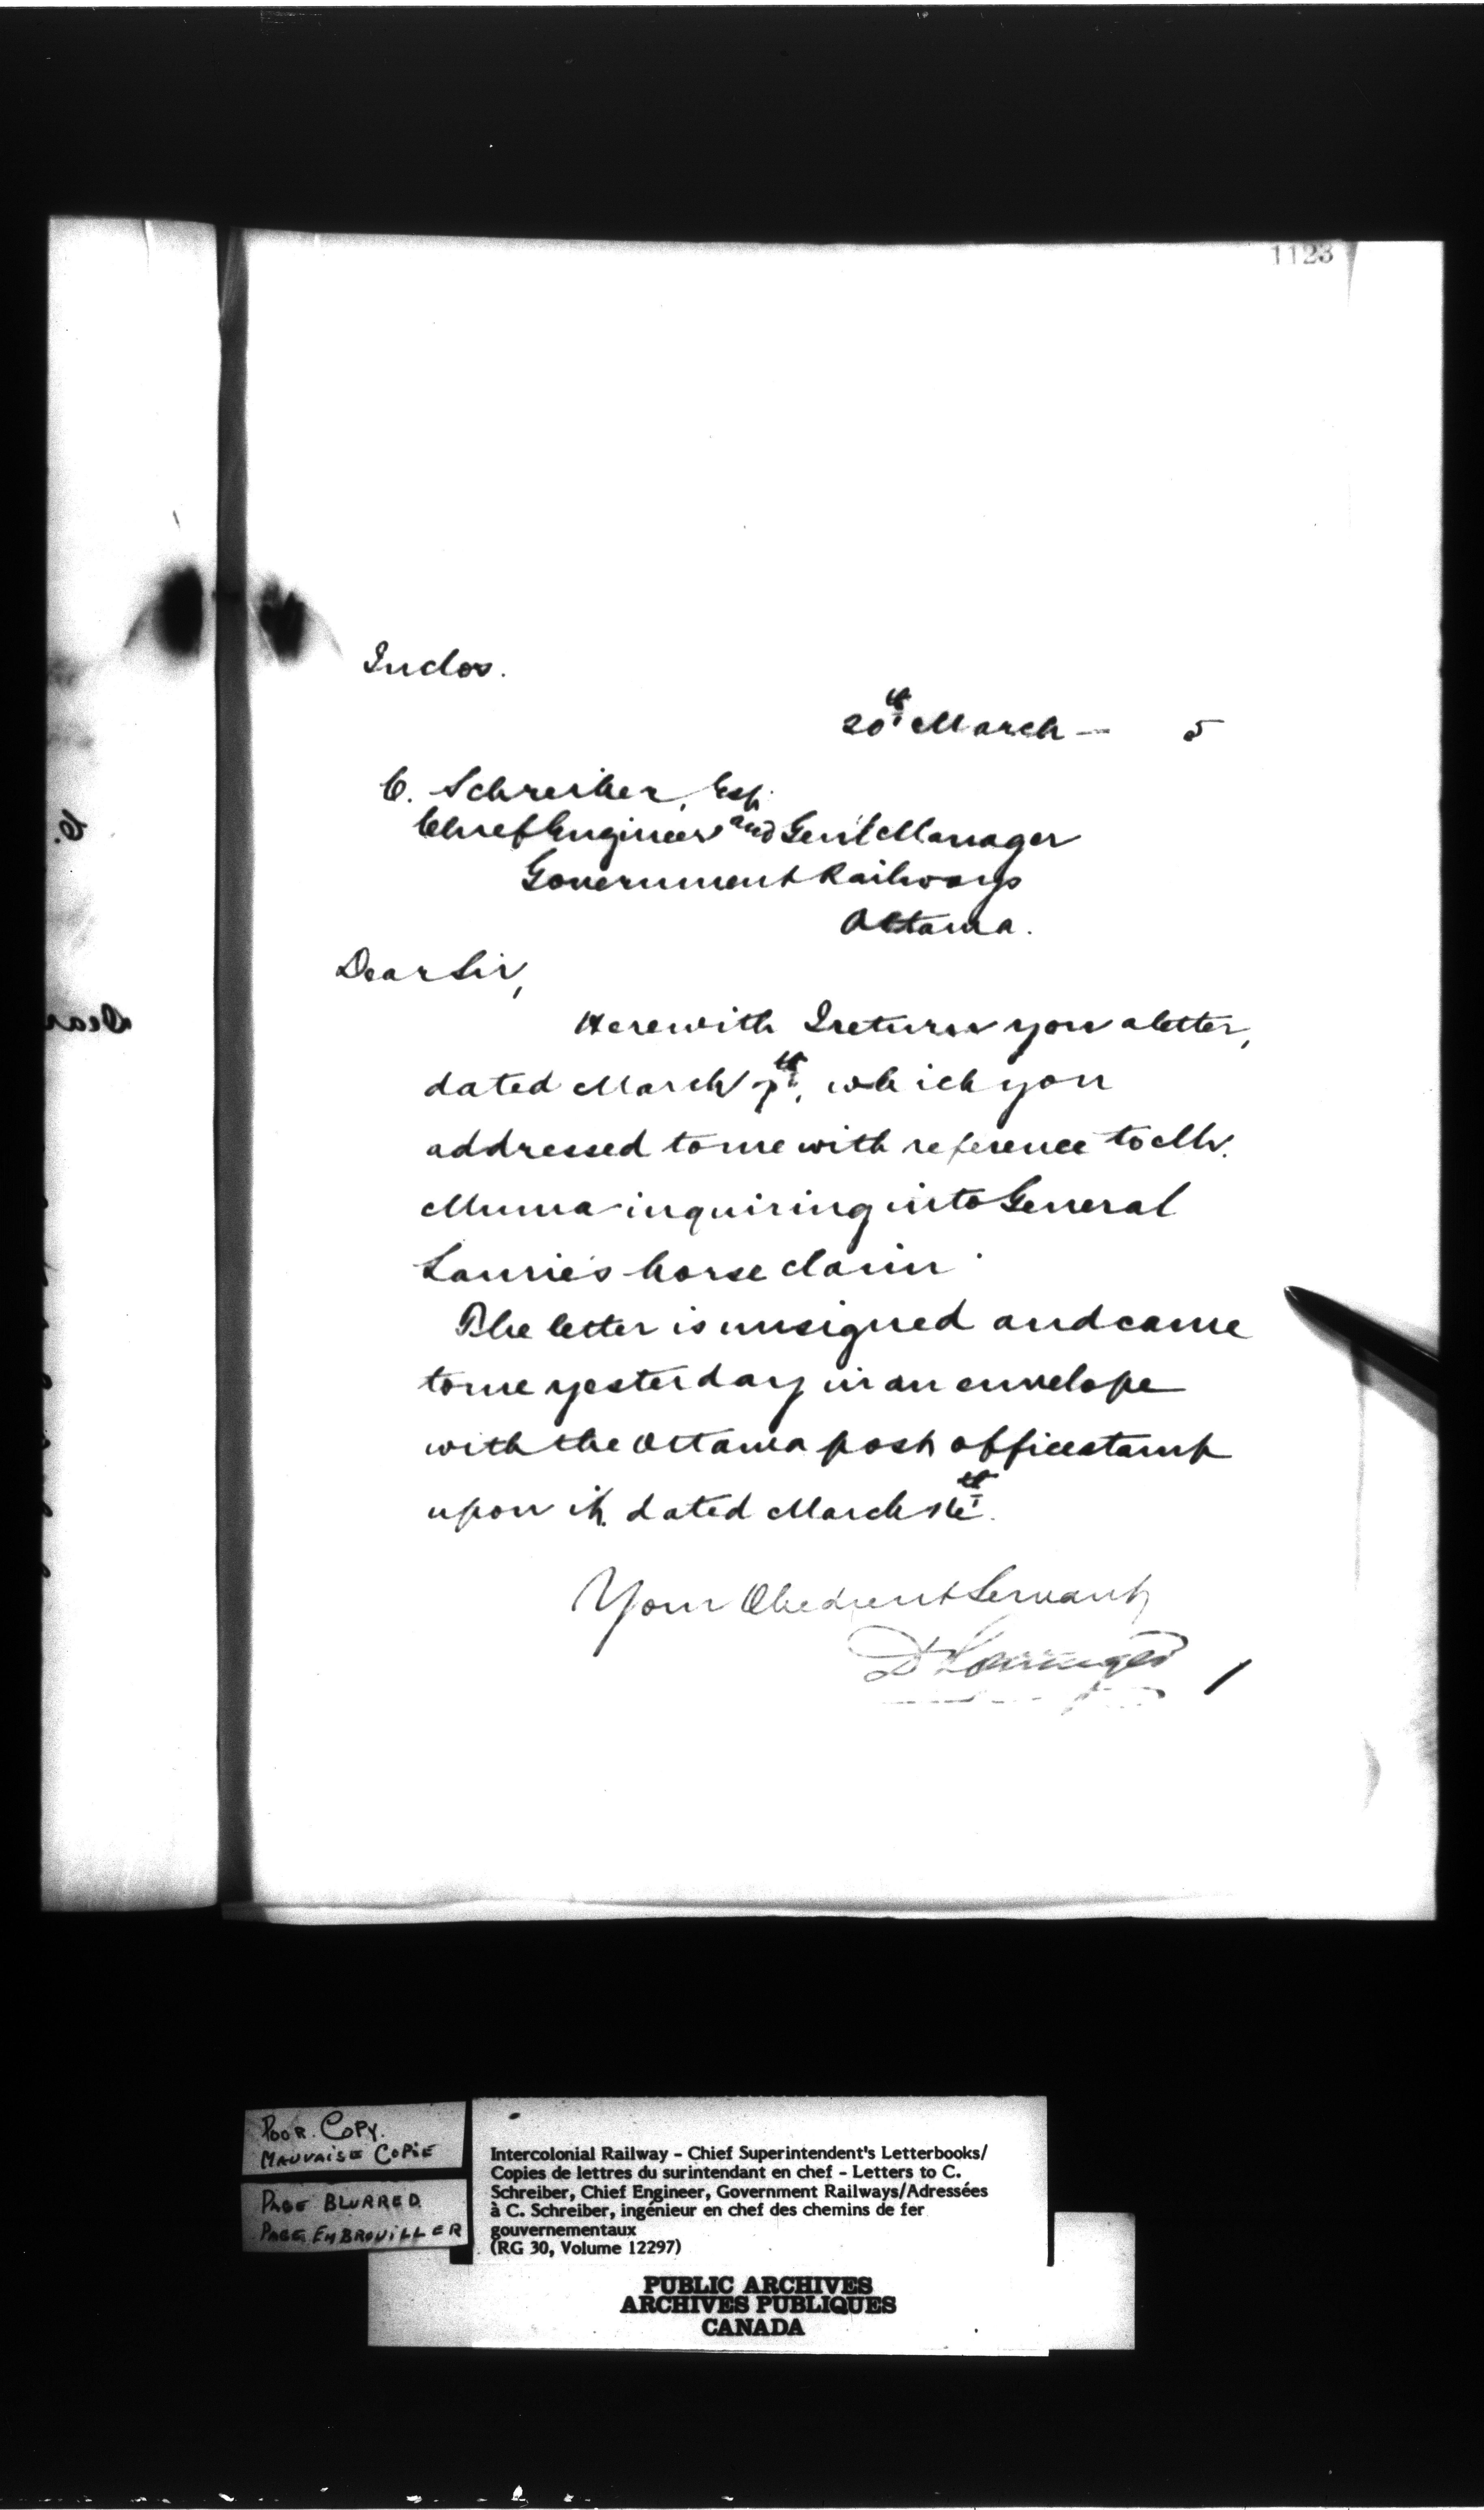 1123
Inclos.
20th March — 5
C. Schreiber, Esq.
Chief Engineer and Gen'l Manager
Government Railways
Ottawa.
Dear Sir,
Herewith I return you a letter,
dated March 7th, which you
addressed to me with reference to Mr.
inquiring into General
Laurie's horse claim.
The letter is unsigned and came
to me yesterday in an envelope
with the Ottawa post office stamp
upon it, dated March 16th.
Your Obedient Servant,
D Pottinger
C.
Dear
POOR. COPY.
MAUVAISE COPIE
PAGE BLURRED
PAGE EMBROUILLER
Intercolonial Railway - Chief Superintendent's Letterbooks/
Copies de lettres du surintendant en chef - Letters to C.
Schreiber, Chief Engineer, Government Railways/Adressées
à C. Schreiber, ingénieur en chef des chemins de fer
gouvernementaux
(RG 30, Volume 12297)
PUBLIC ARCHIVES
ARCHIVES PUBLIQUES
CANADA